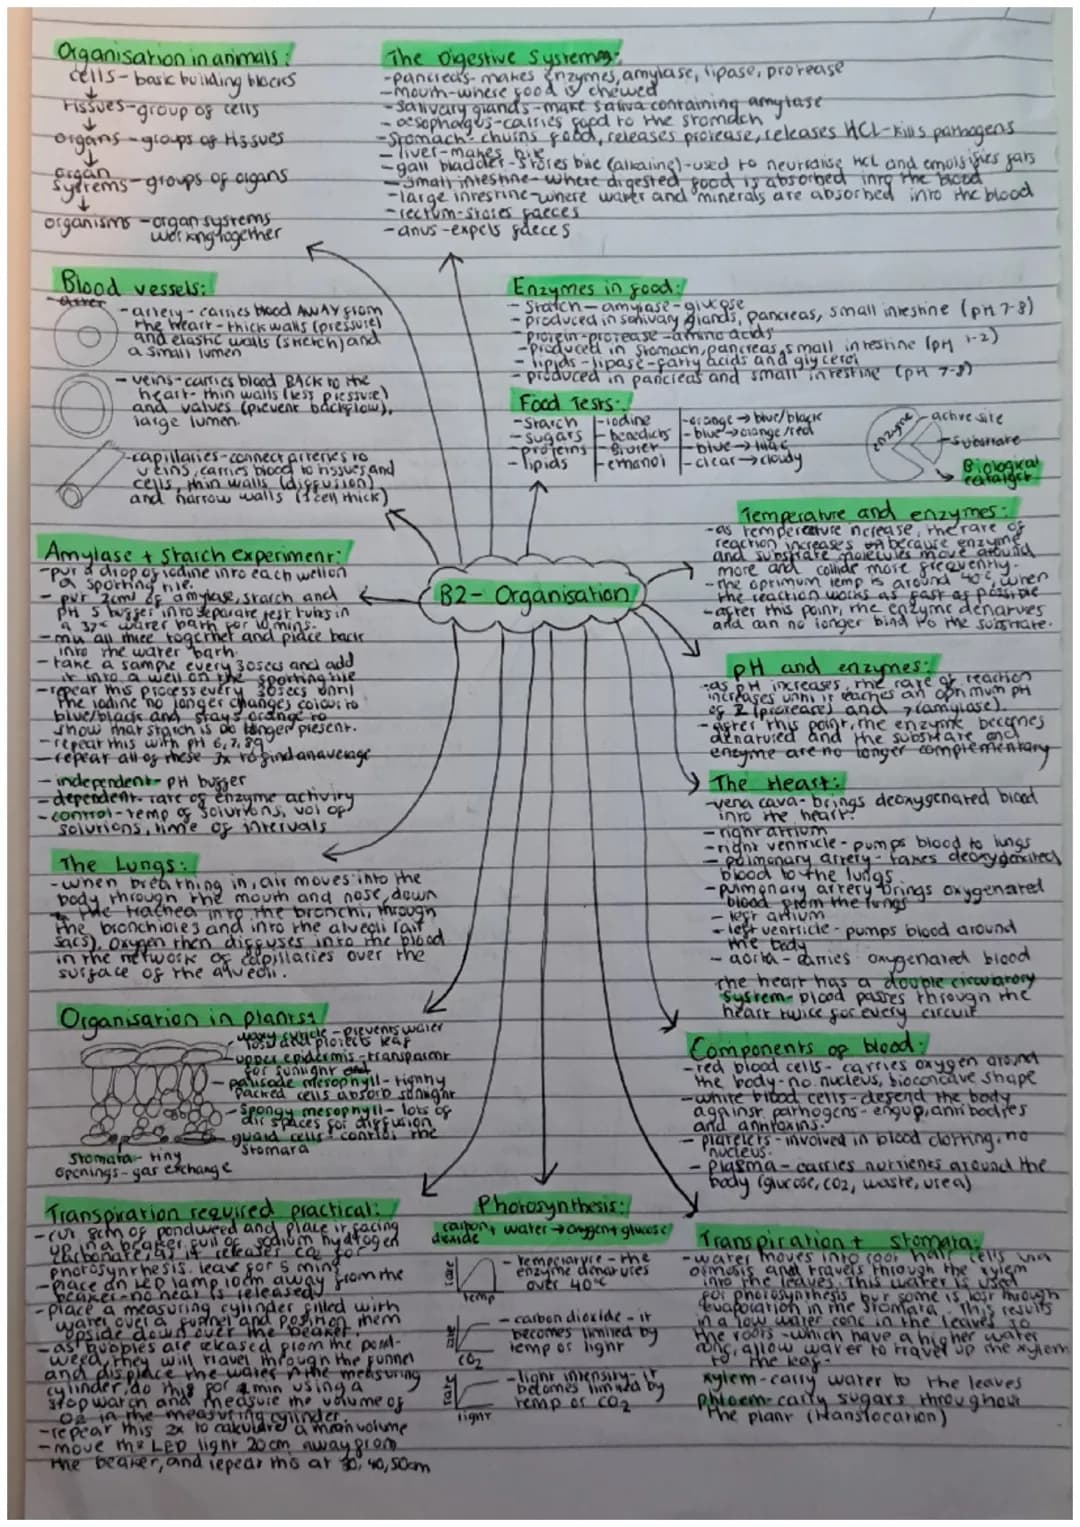 Organisation in animals:
cells - basic building blocks
tissues - group of cells
organs - groups of tissues
organ
systems - groups of organs
organisms - organ systems
working together
The Digestive Systems:
- pancreas - makes enzymes, amylase, lipase, protease
- mouth - where food is chewed
- salivary glands - make saliva containing amylase
- oesophagus - carries food to the stomach
- Stomach - churns food, releases protease, releases HCL - kills pathogens
- liver - makes bile
- gall bladder - stores bile (alkaline) - used to neutralise HCL and emulsifies fats
- small intestine - where digested food is absorbed into the blood
- large intestine - where water and minerals are absorbed into the blood
- rectum - stores faeces
- anus - expels faeces
Blood vessels:
- artery - carries blood AWAY from
the heart - thick walls (pressure)
and elastic walls (stretch) and
a small lumen
- veins - carries blood BACK to the
heart - thin walls (less pressure)
and valves (prevent backflow),
large lumen.
- capillaries - connect arteries to
veins, carries blood to tissues and
cells, thin walls (diffusion)
and narrow walls (1 cell thick)
Enzymes in food:
- Starch - amylase - glucose
- produced in salivary glands, pancreas, small intestine (pH 7-8)
- protein - protease - amino acids
- produced in stomach, pancreas, small intestine (pH 1-2)
- lipids - lipase - fatty acids and glycerol
- produced in pancreas and small intestine (pH 7-8)
Food Tests:
- starch - iodine - orange → blue/black
- sugars - benedicts - blue → orange/red
- proteins - biuret - blue → lilac
- lipids - ethanol - clear → cloudy
enzyme
active site
substrate
Biological
catalyst
Temperature and enzymes:
- as temperature increase, the rate of
reaction increases because enzyme
and substrate molecules move around
more and collide more frequently.
- the optimum temp is around 40°C, when
the reaction works as fast as possible
- after this point, the enzyme denatures
and can no longer bind to the substrate.
Amylase + Starch experiment:
- put a drop of iodine into each well on
a sporting tile.
- put 2cm³ of amylase, starch and
pH 5 buffer into separate test tubes in
a 37°c water bath for 10 mins.
- mix all three together and place back
into the water bath.
- take a sample every 30secs and add
it into a well on the sporting tile
- repeat this process every 30secs until
the iodine no longer changes colour to
blue/black and stays orange to
show that starch is no longer present.
- repeat this with pH 6, 7, 8, 9
- repeat all of these 3x to find an average
- independent - pH buffer
- dependent - rate of enzyme activity
- control - temp of solutions, vol of
solutions, time of intervals
B2 - Organisation
pH and enzymes:
- as pH increases, the rate of reaction
increases until it reaches an optimum pH
of 2 (protease) and 7 (amylase).
- after this point, the enzyme becomes
denatured and the substrate and
enzyme are no longer complementary
The Heart:
- vena cava - brings deoxygenated blood
into the heart.
- right atrium
- right ventricle - pumps blood to lungs
- pulmonary artery - takes deoxygenated
blood to the lungs
- pulmonary artery brings oxygenated
blood from the lungs
- left atrium
- left ventricle - pumps blood around
the body
- aorta - carries oxygenated blood
the heart has a double circulatory
system - blood passes through the
heart twice for every circuit
The Lungs:
- when breathing in, air moves into the
body through the mouth and nose, down
the trachea into the bronchi, through
the bronchioles and into the alveoli (air
sacs). Oxygen then diffuses into the blood
in the network of capillaries over the
surface of the alveoli.
Organisation in plants:
waxy cuticle - prevents water
loss and protects leaf
upper epidermis - transparent
for sunlight
- palisade mesophyll - tightly
packed cells absorb sunlight
- Spongy mesophyll - lots of
air spaces for diffusion
guard cells - control the
stomata
stomata - tiny
openings - gas exchange
Components of blood:
- red blood cells - carries oxygen around
the body - no nucleus, bioconcave shape
- white blood cells - defend the body
against pathogens - engulf, antibodies
and antitoxins.
- platelets - involved in blood clotting, no
nucleus.
- plasma - carries nutrients around the
body (glucose, CO2, waste, urea)
Transpiration required practical:
- cut 8cm of pondweed and place it facing
up in a beaker full of sodium hydrogen
carbonate, as it releases CO2 for
photosynthesis. leave for 5 mins
- place an LED lamp 10cm away from the
beaker - no heat is released
- place a measuring cylinder filled with
water over a funnel and position them
upside down over the beaker.
- as bubbles are released from the pond-
weed, they will travel through the funnel
and displace the water in the measuring
cylinder, do this for 1 min using a
stopwatch and measure the volume of
O2 in the measuring cylinder.
- repeat this 2x to calculate a mean volume
- move the LED light 20cm away from
the beaker, and repeat this at 30, 40, 50cm
Photosynthesis:
carbon
dioxide + water → oxygen + glucose
rate
temp
- temperature - the
enzyme denatures
over 40°C
rate
CO2
- carbon dioxide - it
becomes limited by
temp or light
rate
light
- light intensity - it
becomes limited by
temp or CO2
Transpiration + stomata:
- water moves into root hair cells via
osmosis and travels through the xylem
into the leaves. This water is used
for photosynthesis but some is lost through
evaporation in the stomata. This results
in a low water conc in the leaves so
the roots - which have a higher water
conc, allow water to travel up the xylem
to the leaf.
xylem - carry water to the leaves
phloem - carry sugars throughout
the plant (translocation)